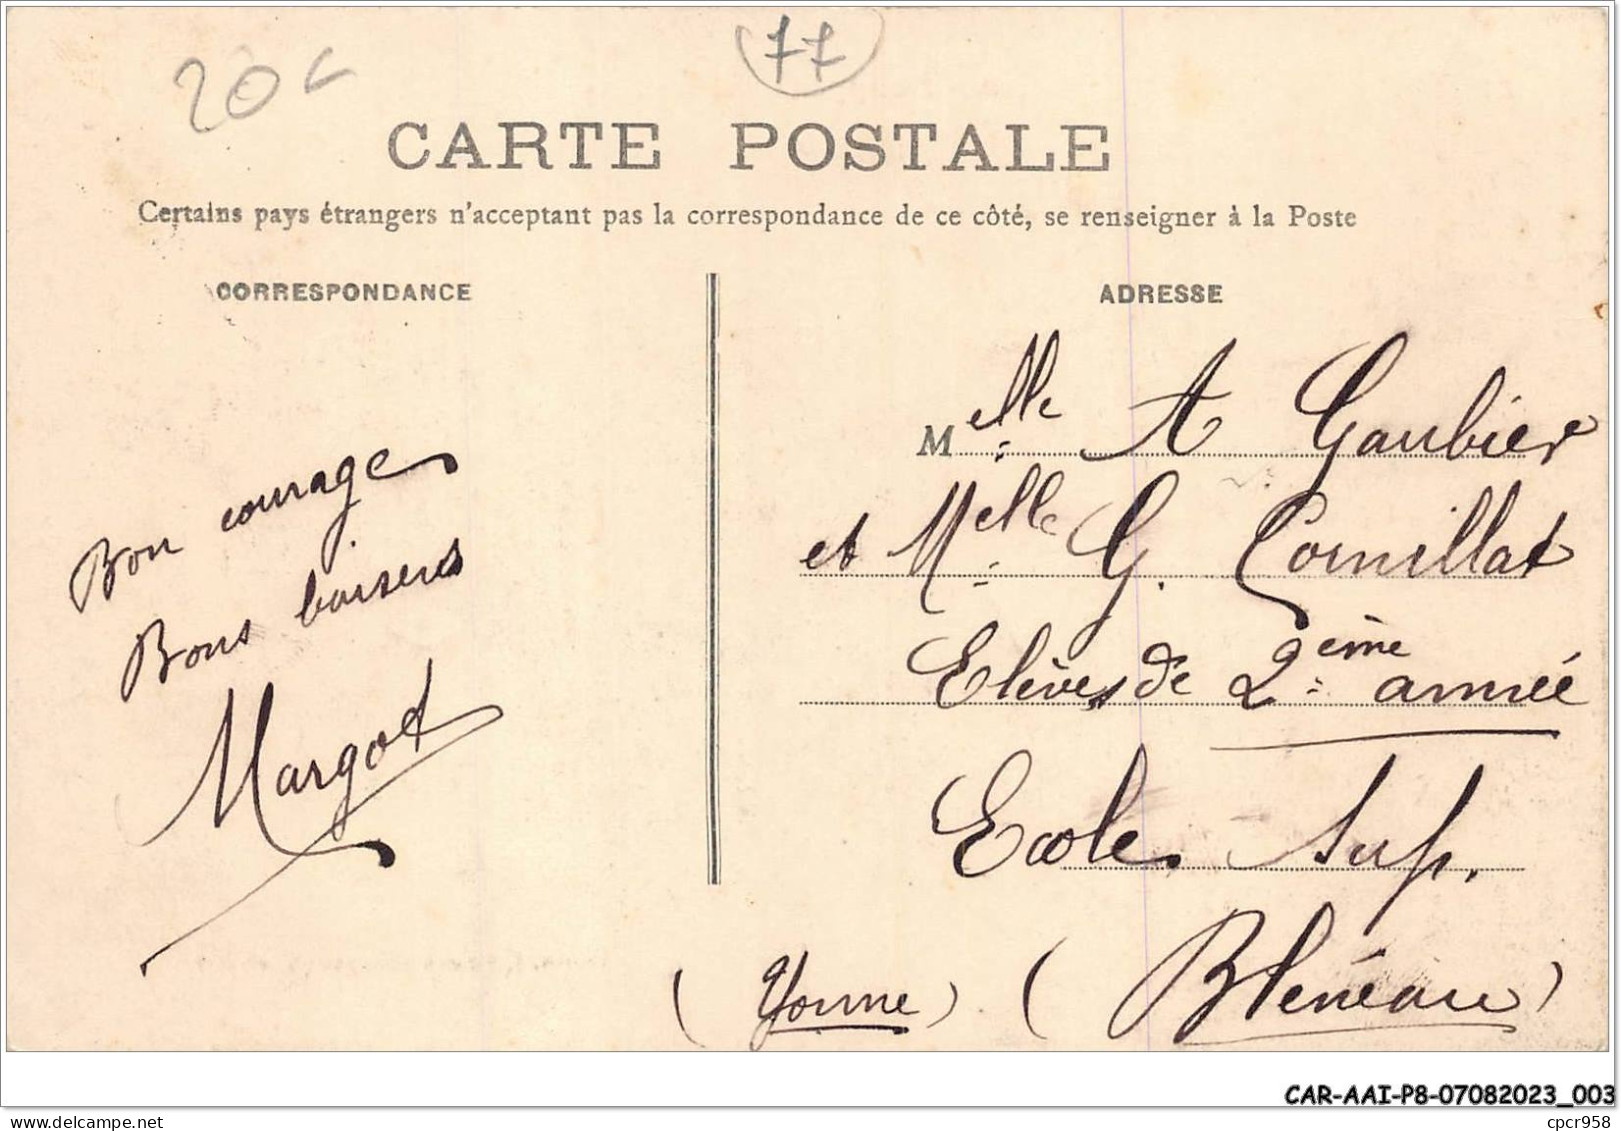 20 c
77
CARTE POSTALE
Certains pays étrangers n'acceptant pas la correspondance de ce côté, se renseigner à la Poste
CORRESPONDANCE
Bon courage
Bons baisers
Margot
ADRESSE
Melle A Gaubier
et Melle G. Cornillat
Elèves de 2ème année
Ecole Sup.
(Yonne) (Bléneau)
CAR-AAI-P8-07082023_003
www.delcampe.net
cpcr958